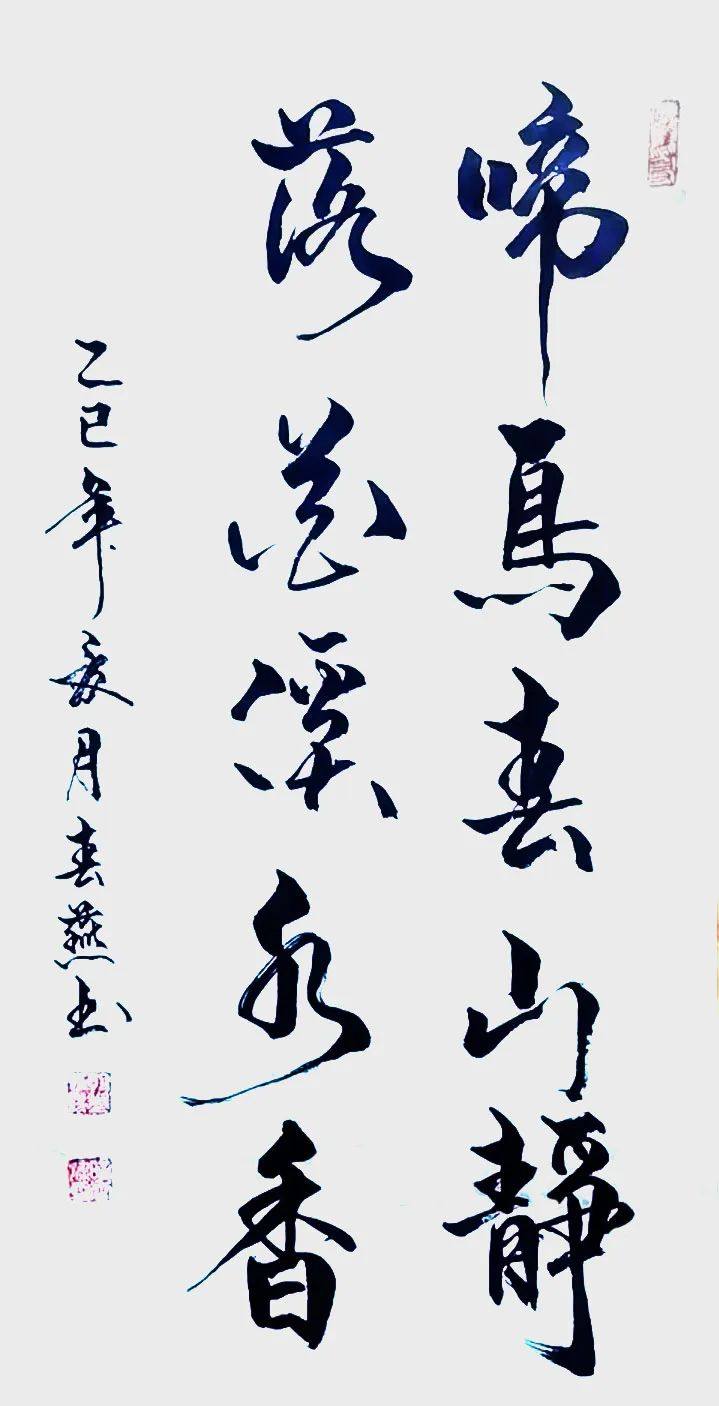 啼鳥春山靜
落花溪水香
乙巳年夏月春燕书